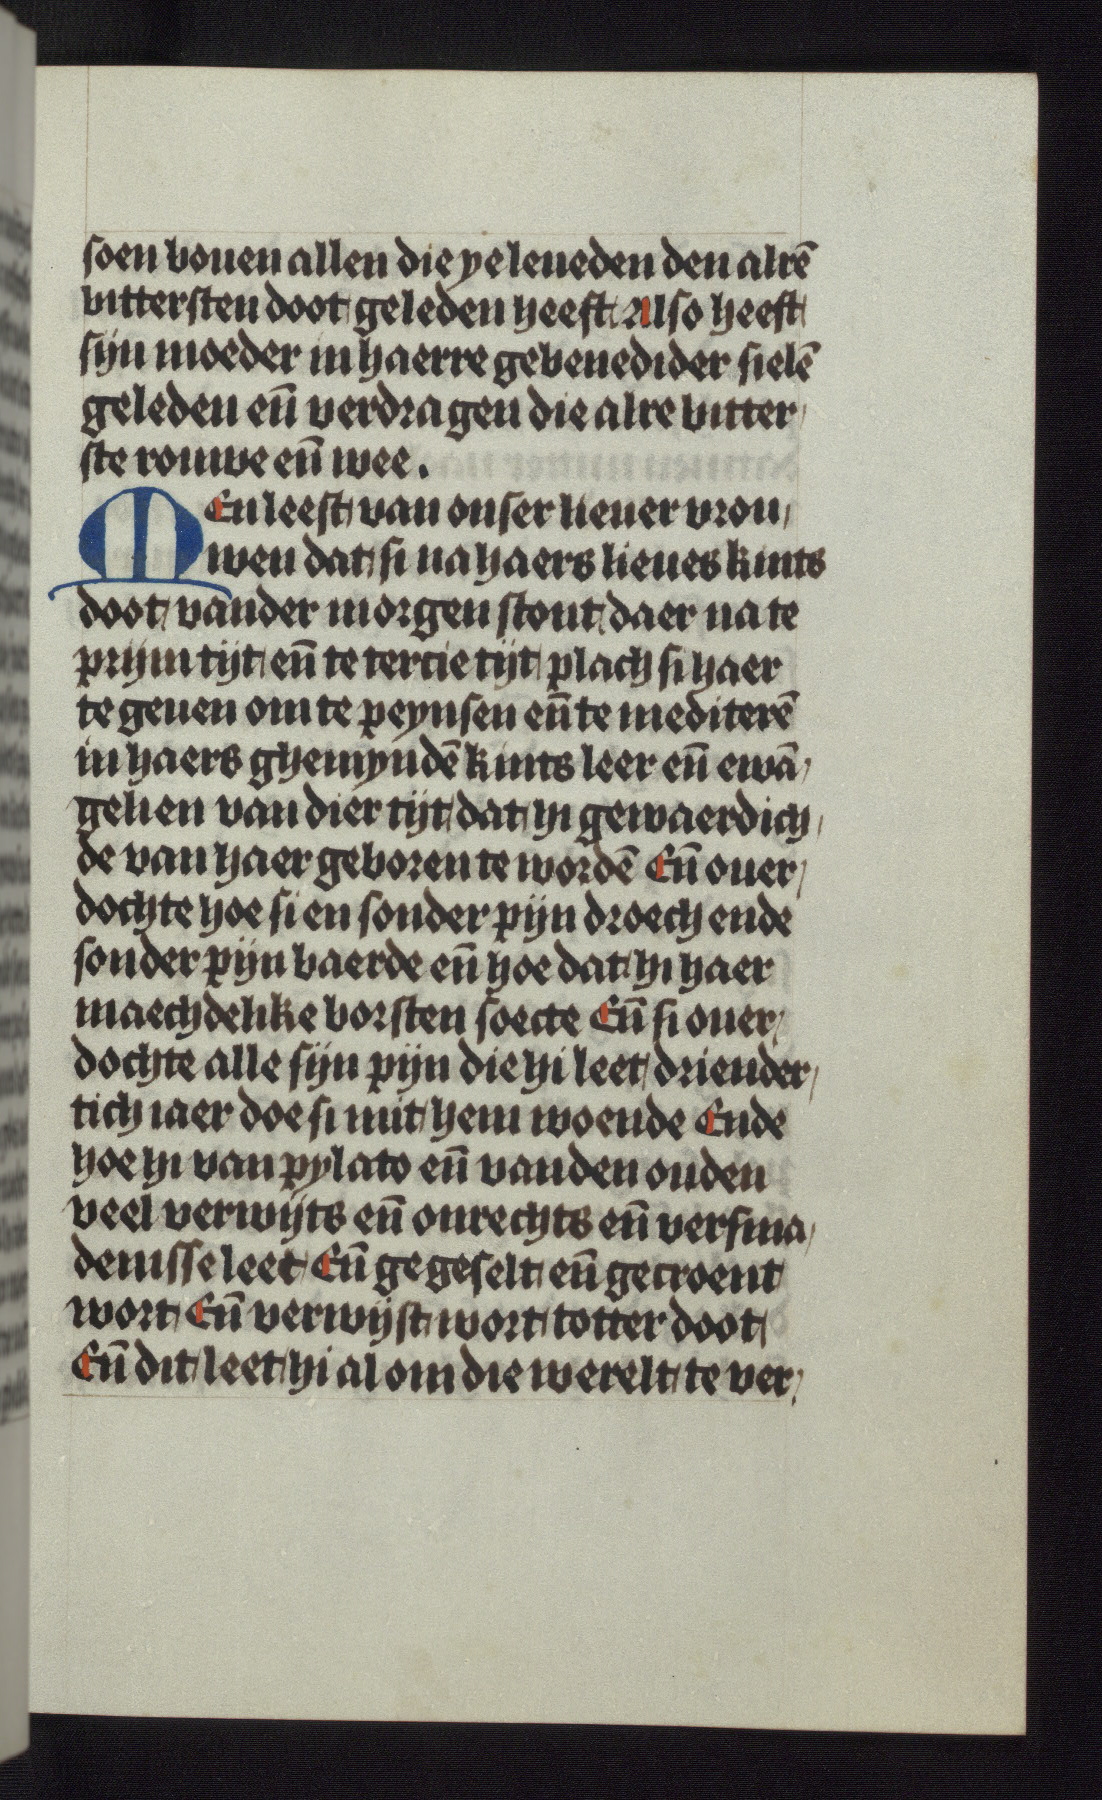 soen bouen allen die ye leueden den alrē
bittersten doot geleden heeft Also heeft
sijn moeder in haerre gebenedider sielē
geleden eñ verdragen die alre bitter/
ste rouwe eñ wee.
MEn leest van onser lieuer vrou/
wen dat si na haers lieues kints
doot vander morgen stont daer na te
prijm tijt eñ te tercie tijt plach si haer
te geuen om te peynsen eñ te mediterē
in haers ghemyndē kints leer eñ ewā/
gelien van dier tijt dat hi gewaerdich/
de van haer geboren te wordē Eñ ouer/
dochte hoe si en sonder pijn droech ende
sonder pijn baerde eñ hoe dat hi haer
maechdelike borsten soecte Eñ si ouer/
dochte alle sijn pijn die hi leet driender/
tich iaer doe si mit hem woende Ende
hoe hi van pylato eñ vanden ouden
veel verwijts eñ onrechts eñ versma/
denisse leet Eñ gegeselt eñ gecroent
wort Eñ verwijst wort totter doot
Eñ dit leet hi al om die werelt te ver/